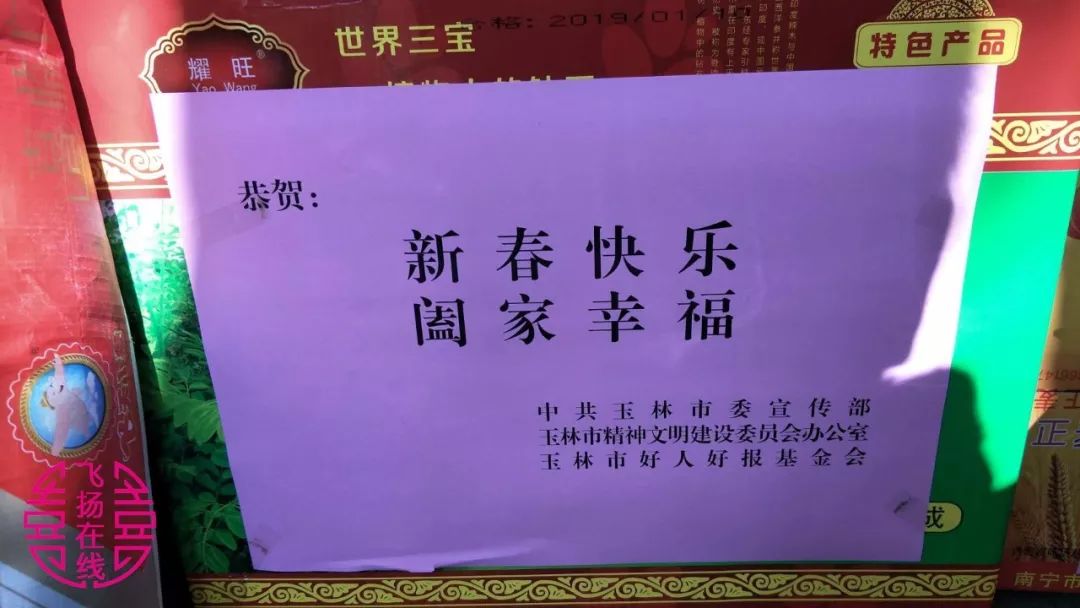 耀旺®
Yao Wang
世界三宝
合格:2019/01/
特色产品
恭贺:
新春快乐
阖家幸福
中共玉林市委宣传部
玉林市精神文明建设委员会办公室
玉林市好人好报基金会
成
正
南宁市
飞扬在线